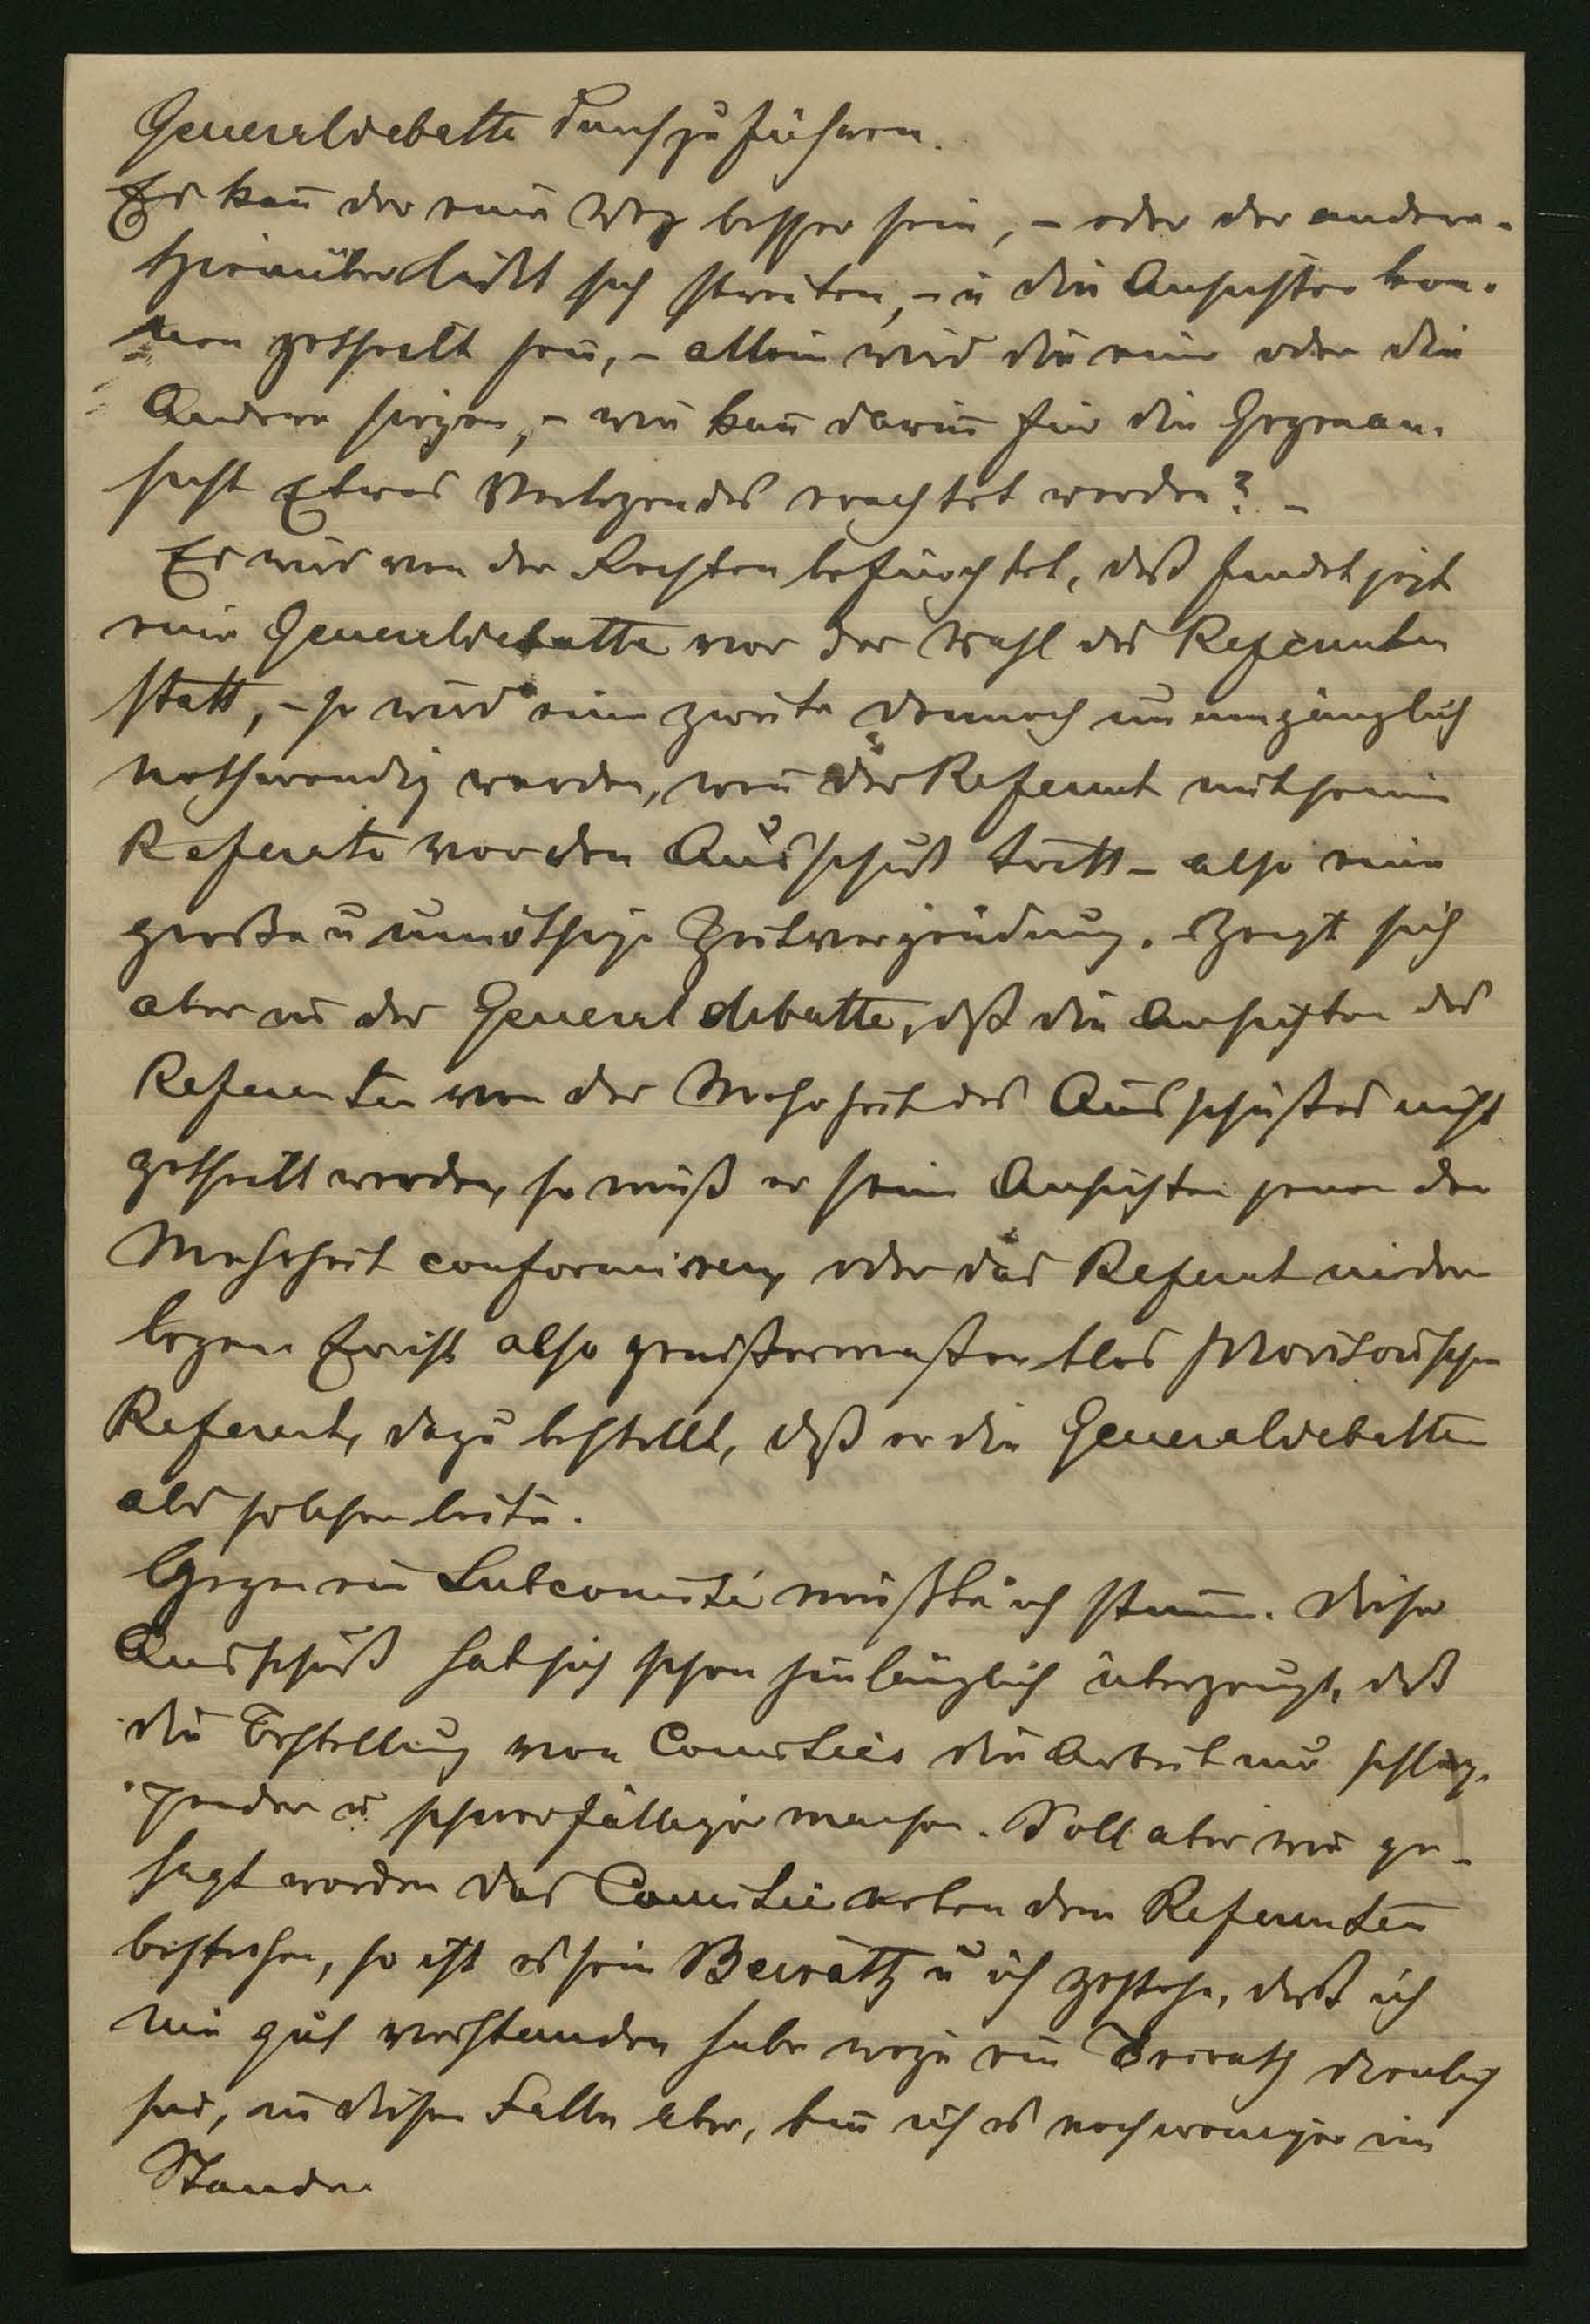 Generaldebatte durchzuführen.
Es kan̄ der eine Weg besser sein, – oder der andere.
Hierüber läßt sich streiten, – u die Ansichten kön-
nen getheilt sein, – allein wird die eine oder die
Andere siegen, – wie kan̄ darin̄ für die Gegenan-
sicht Etwas Verletzendes erachtet werden? –
Es wird von der Rechten befürchtet, daß findet jetzt
eine Generaldebatte vor der Wahl des Referenten
statt, – so wird eine zweite dennoch unumgänglich
nothwendig werden, wen̄ der Referent mit seinem
Referate vor den Ausschuß tritt – also eine
große u unnöthige Zeitvergeudung. – Zeigt sich
aber in der Generaldebatte, daß die Ansichten des
Referenten von der Mehrheit des Ausschußes nicht
getheilt werden, so muß er seine Ansichten jenen der
Mehrheit conformiren, oder das Referat nieder
legen. Er ist also gewißermaßen blos provisorischer
Referent, dazu bestellt, daß er die Generaldebatte
als solcher leite.
Gegen ein Subcomité müßte ich stim̄en. Dieser
Ausschuß hat sich schon hinlänglich überzeugt, daß
die Bestellung von Comités die Arbeit nur schlep-
pender u schwerfälliger machen. Soll aber wie ge-
sagt worden das Comité neben dem Referenten
bestehen, so ist es sein Beirath u ich gestehe, daß ich
nie gut verstanden habe wozu ein Beirath dienlich
sei, in diesem Falle aber, bin ich es noch weniger im
Stande